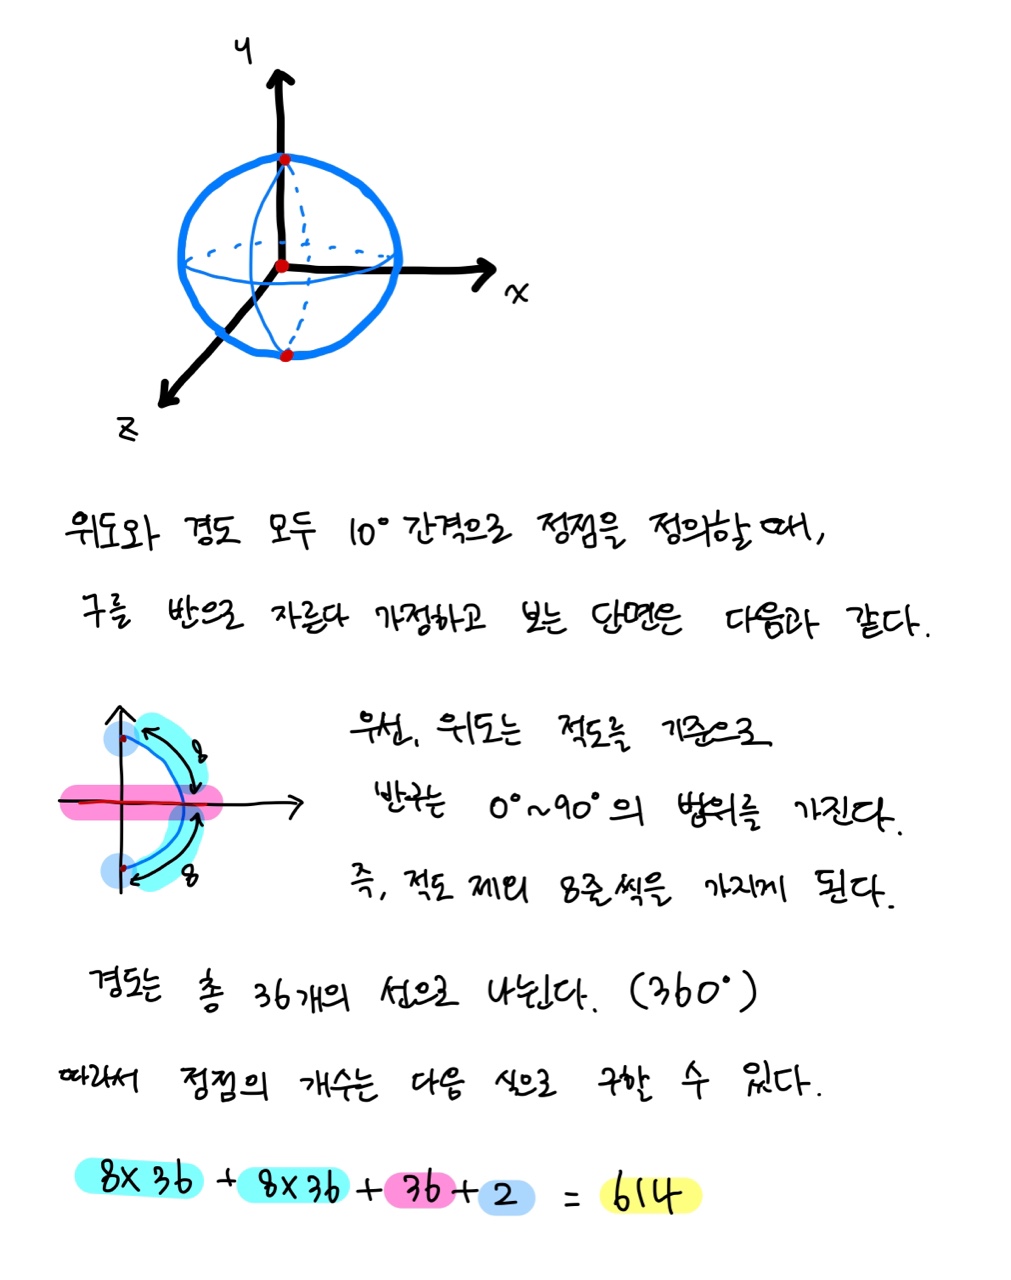 y
x
z
위도와 경도 모두 10° 간격으로 정점을 정의할 때,
구를 반으로 자른다 가정하고 보는 단면은 다음과 같다.
8
8
우선, 위도는 적도를 기준으로
반구는 0°~90°의 범위를 가진다.
즉, 적도 제외 8줄씩을 가지게 된다.
경도는 총 36개의 선으로 나뉜다. (360°)
따라서 정점의 개수는 다음 식으로 구할 수 있다.
8x36 + 8x36 + 36 + 2 = 614